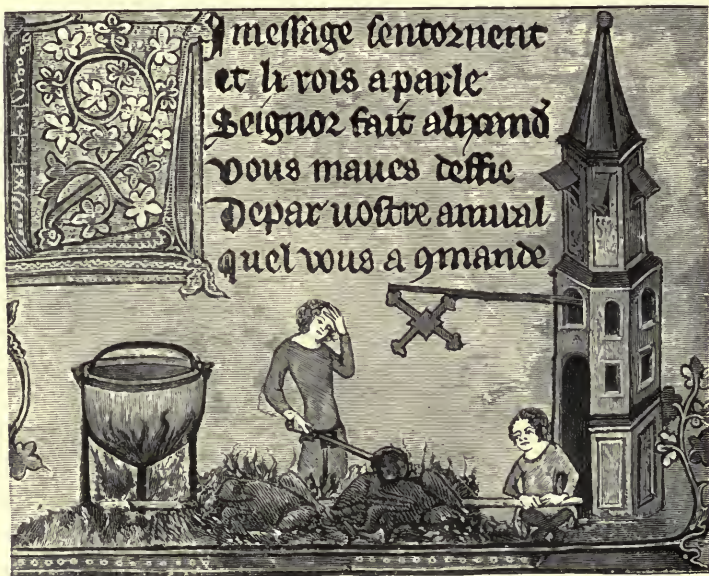 I message sentornent
et li rois a parle
Seignor fait alixand
vous maves deffie
Depar uostre amiral
quel vous a 9mande